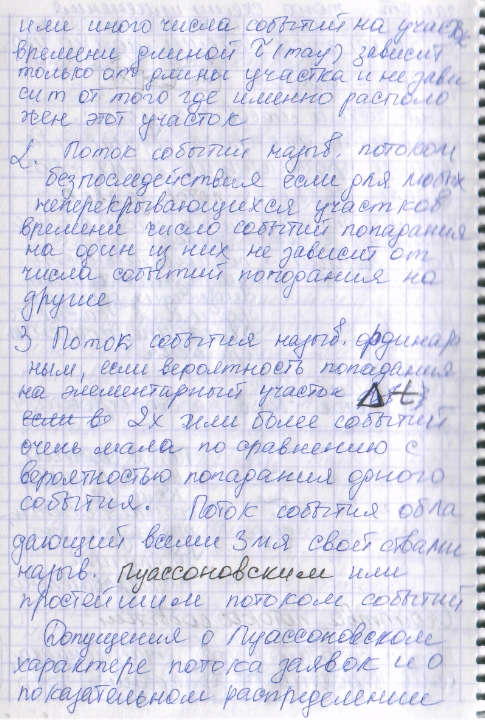 или иного числа событий на участке
времени длиной τ (тау) зависит
только от длины участка и не зави
сит от того где именно располо
жен этот участок
2. Поток событий назыв. потоком
безпоследействия если для любых
неперекрывающихся участков
времени число событий попадания
на один из них не зависит от
числа событий попадания на
другие
3 Поток события назыв. ординар
ным, если вероятность попадания
на элементарный участок Δ(t)
если в 2х или более событий
очень мала по сравнению с
вероятностью попадания одного
события. Поток события обла
дающий всеми 3мя свойствами
назыв. Пуассоновским или
простейшим потоком событий
Допущения о Пуассоновском
характере потока заявок и о
показательном распределении